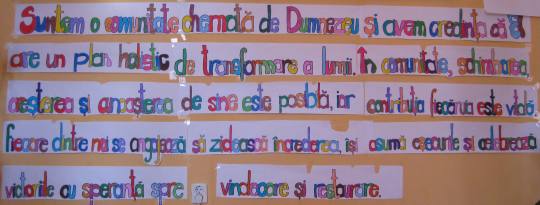 Suntem o comunitate chemată de Dumnezeu și avem credința că El
are un plan holistic de transformare a lumii. În comunitate, schimbarea,
creșterea și cunoașterea de sine este posibilă, iar contribuția fiecăruia este vitală.
Fiecare dintre noi se angajează să zidească încrederea, își asumă eșecurile și celebrează
victoriile cu speranță spre vindecare și restaurare.